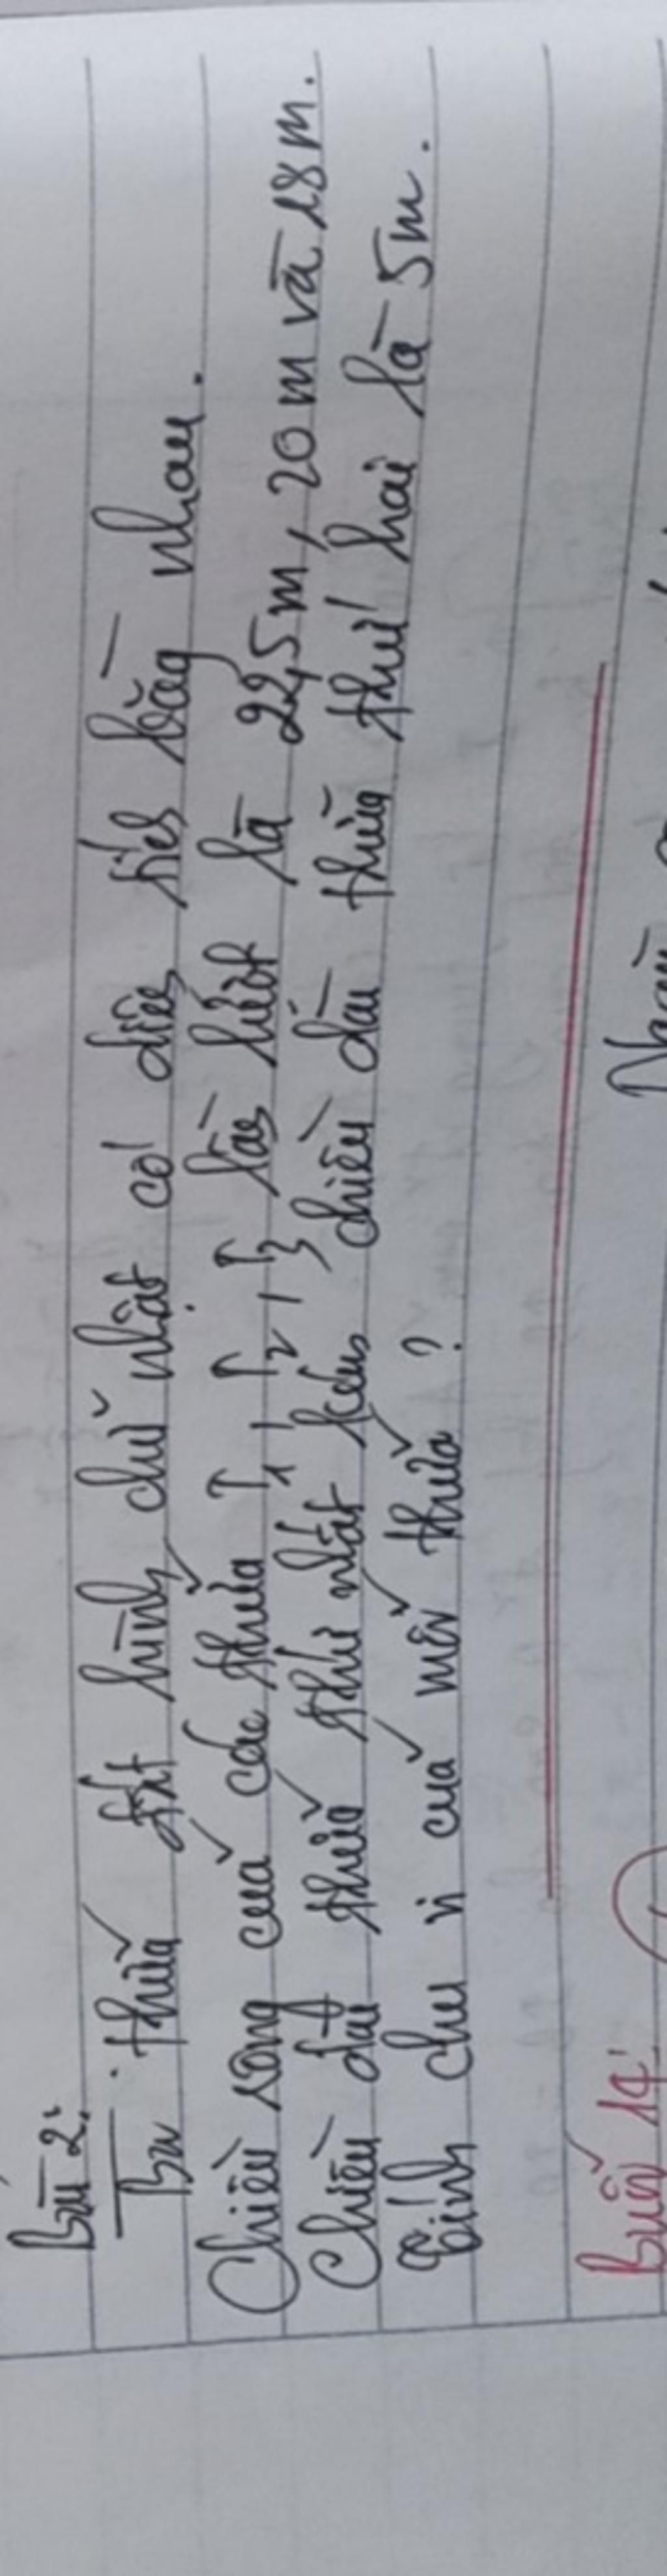 Bài 2:
Ba thửa đất hình chữ nhật có diện tích bằng nhau.
Chiều rộng của các thửa I1, I2, I3 lần lượt là 22,5m, 20m và 18m.
Chiều dài thửa thứ nhất kém chiều dài thửa thứ hai là 5m.
Tính chu vi của mỗi thửa?
Buổi 14: